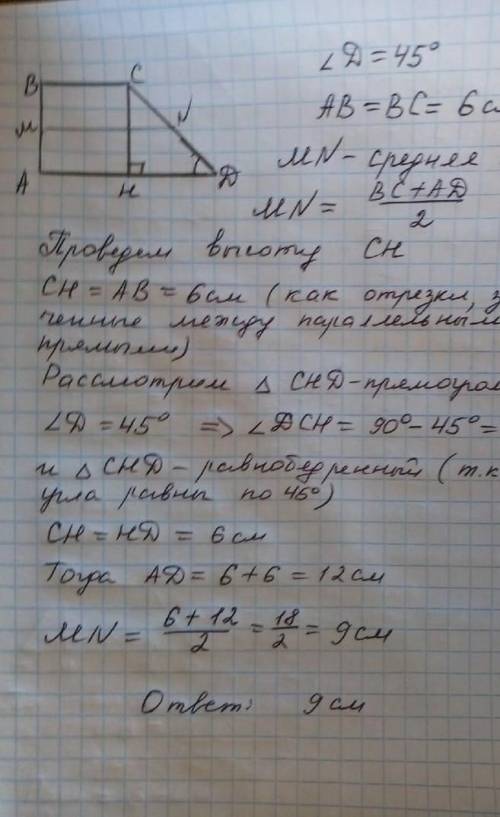 ∠D = 45°
AB = BC = 6 с
MN – средняя
MN = (BC + AD)/2
B C
M N
A H D
Проведем высоту CH
CH = AB = 6 см (как отрезки,
ченные между параллельным
прямыми)
Рассмотрим △ CHD – прямоугол
∠D = 45° => ∠DCH = 90° – 45° =
и △ CHD – равнобедренный (т.к
угла равны по 45°)
CH = HD = 6 см
Тогда AD = 6 + 6 = 12 см
MN = (6 + 12)/2 = 18/2 = 9 см
Ответ: 9 см